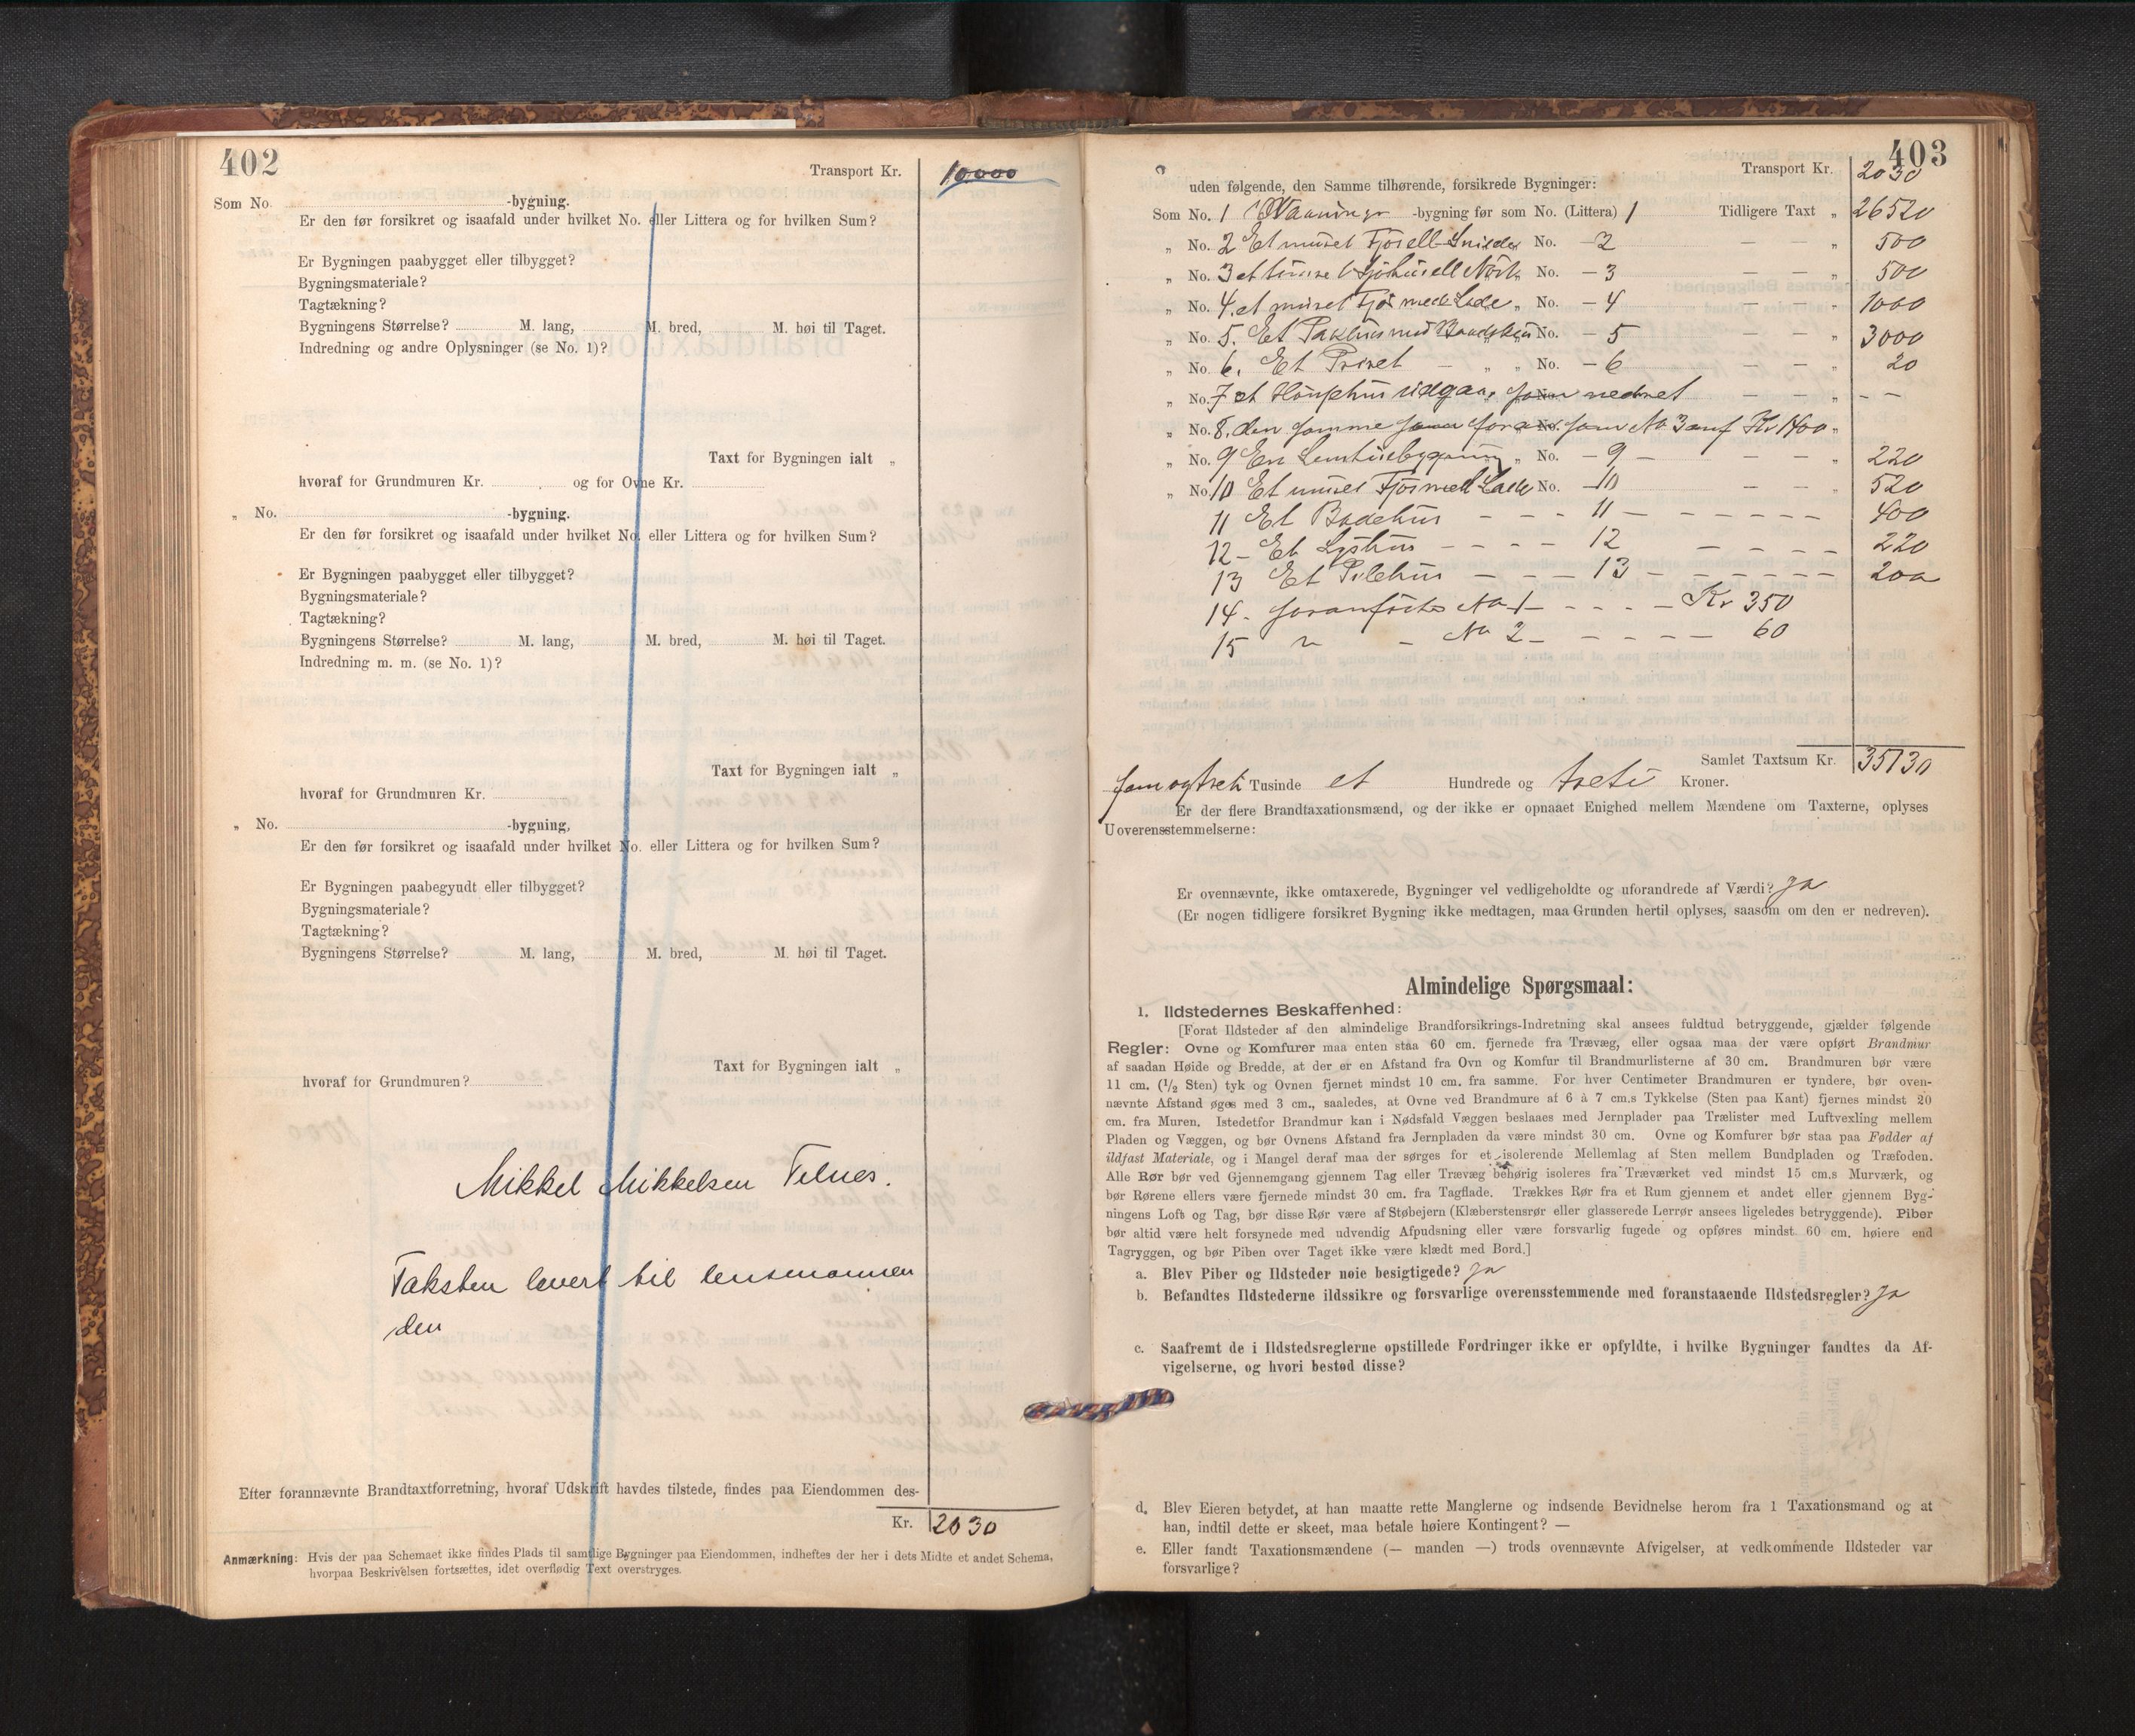 402
Transport Kr. 10000
Som No. -bygning.
Er den før forsikret og isaafald under hvilket No. eller Littera og for hvilken Sum?
Er Bygningen paabygget eller tilbygget?
Bygningsmateriale?
Tagtækning?
Bygningens Størrelse? M. lang, M. bred, M. høi til Taget.
Indredning og andre Oplysninger (se No. 1)?
Taxt for Bygningen ialt „
hvoraf for Grundmuren Kr. og for Ovne Kr.
„ No. -bygning.
Er den før forsikret og isaafald under hvilket No. eller Littera og for hvilken Sum?
Er Bygningen paabygget eller tilbygget?
Bygningsmateriale?
Tagtækning?
Bygningens Størrelse? M. lang, M. bred, M. høi til Taget.
Indredning m. m. (se No. 1)?
Taxt for Bygningen ialt „
hvoraf for Grundmuren Kr.
„ No. -bygning,
Er den før forsikret og isaafald under hvilket No. eller Littera og for hvilken Sum?
Er Bygningen paabegyndt eller tilbygget?
Bygningsmateriale?
Tagtækning?
Bygningens Størrelse? M. lang, M. bred, M. høi til Taget.
Taxt for Bygningen ialt „
hvoraf for Grundmuren?
Mikkel Mikkelsen Telnes.
Taksten levert til lensmannen
den
Efter forannævnte Brandtaxtforretning, hvoraf Udskrift havdes tilstede, findes paa Eiendommen des-
Kr. 2030
Anmærkning: Hvis der paa Schemaet ikke findes Plads til samtlige Bygninger paa Eiendommen, indheftes der her i dets Midte et andet Schema,
hvorpaa Beskrivelsen fortsættes, idet overflødig Text overstryges.
403
Transport Kr. 2030
uden følgende, den Samme tilhørende, forsikrede Bygninger:
Som No. 1 Vaanings -bygning før som No. (Littera) 1 Tidligere Taxt „ 26520
„ No. 2 Et muret Fjös ell No. - 2 — — „ 500
„ No. 3 et No. - 3 — — „ 500
„ No. 4. et muret Fjös med Lade „ No. - 4 — — „ 1000
„ No. 5. Et Pakhus med Baadhus No. - 5 — — „ 3000
„ No. 6. Et Privet - „ „ No. - 6 — — „ 20
„ No. 7 et Hönsehus udgaar som nedret — — „ - -
„ No. 8. den samme som foran som No 3 anf Kr 1400 „
„ No. 9 En „ No. - 9 — — — „ 220
„ No. 10 Et muret Fjös med Lade No. - 10 — — „ 520
11 Et Badehus - - - 11 - - - - - - 400
12 - Et Lysthus - - - - 12 - - - - 220
13 Et - - - 13 - - - - - - 200
14. foranförte No 1 - - - - - Kr 350
15 „ - No 2 - - - - - 60
Samlet Taxtsum Kr. 35130
fem og treti Tusinde et Hundrede og treti Kroner.
Er der flere Brandtaxationsmænd, og der ikke er opnaaet Enighed mellem Mændene om Taxterne, oplyses
Uoverensstemmelserne:
Er ovennævnte, ikke omtaxerede, Bygninger vel vedligeholdte og uforandrede af Værdi? Ja
(Er nogen tidligere forsikret Bygning ikke medtagen, maa Grunden hertil oplyses, saasom om den er nedreven).
Almindelige Spørgsmaal:
1. Ildstedernes Beskaffenhed:
[Forat Ildsteder af den almindelige Brandforsikrings-Indretning skal ansees fuldtud betryggende, gjælder følgende
Regler: Ovne og Komfurer maa enten staa 60 cm. fjernede fra Trævæg, eller ogsaa maa der være opført Brandmur
af saadan Høide og Bredde, at der er en Afstand fra Ovn og Komfur til Brandmurlisterne af 30 cm. Brandmuren bør være
11 cm. (1/2 Sten) tyk og Ovnen fjernet mindst 10 cm. fra samme. For hver Centimeter Brandmuren er tyndere, bør oven-
nævnte Afstand øges med 3 cm., saaledes, at Ovne ved Brandmure af 6 à 7 cm.s Tykkelse (Sten paa Kant) fjernes mindst 20
cm. fra Muren. Istedetfor Brandmur kan i Nødsfald Væggen beslaaes med Jernplader paa Trælister med Luftvexling mellem
Pladen og Væggen, og bør Ovnens Afstand fra Jernpladen da være mindst 30 cm. Ovne og Komfurer bør staa paa Fødder af
ildfast Materiale, og i Mangel deraf maa der sørges for et isolerende Mellemlag af Sten mellem Bundpladen og Træfoden.
Alle Rør bør ved Gjennemgang gjennem Tag eller Trævæg behørig isoleres fra Træværket ved mindst 15 cm.s Murværk, og
bør Rørene ellers være fjernede mindst 30 cm. fra Tagflade. Trækkes Rør fra et Rum gjennem et andet eller gjennem Byg-
ningens Loft og Tag, bør disse Rør være af Støbejern (Klæberstensrør eller glasserede Lerrør ansees ligeledes betryggende). Piber
bør altid være helt forsynede med udvendig Afpudsning eller være forsvarlig fugede og opføres mindst 60 cm. høiere end
Tagryggen, og bør Piben over Taget ikke være klædt med Bord.]
a. Blev Piber og Ildsteder nøie besigtigede? Ja
b. Befandtes Ildstederne ildssikre og forsvarlige overensstemmende med foranstaaende Ildstedsregler? Ja
c. Saafremt de i Ildstedsreglerne opstillede Fordringer ikke er opfyldte, i hvilke Bygninger fandtes da Af-
vigelserne, og hvori bestod disse?
d. Blev Eieren betydet, at han maatte rette Manglerne og indsende Bevidnelse herom fra 1 Taxationsmand og at
han, indtil dette er skeet, maa betale høiere Kontingent? —
e. Eller fandt Taxationsmændene (— manden —) trods ovennævnte Afvigelser, at vedkommende Ildsteder var
forsvarlige?